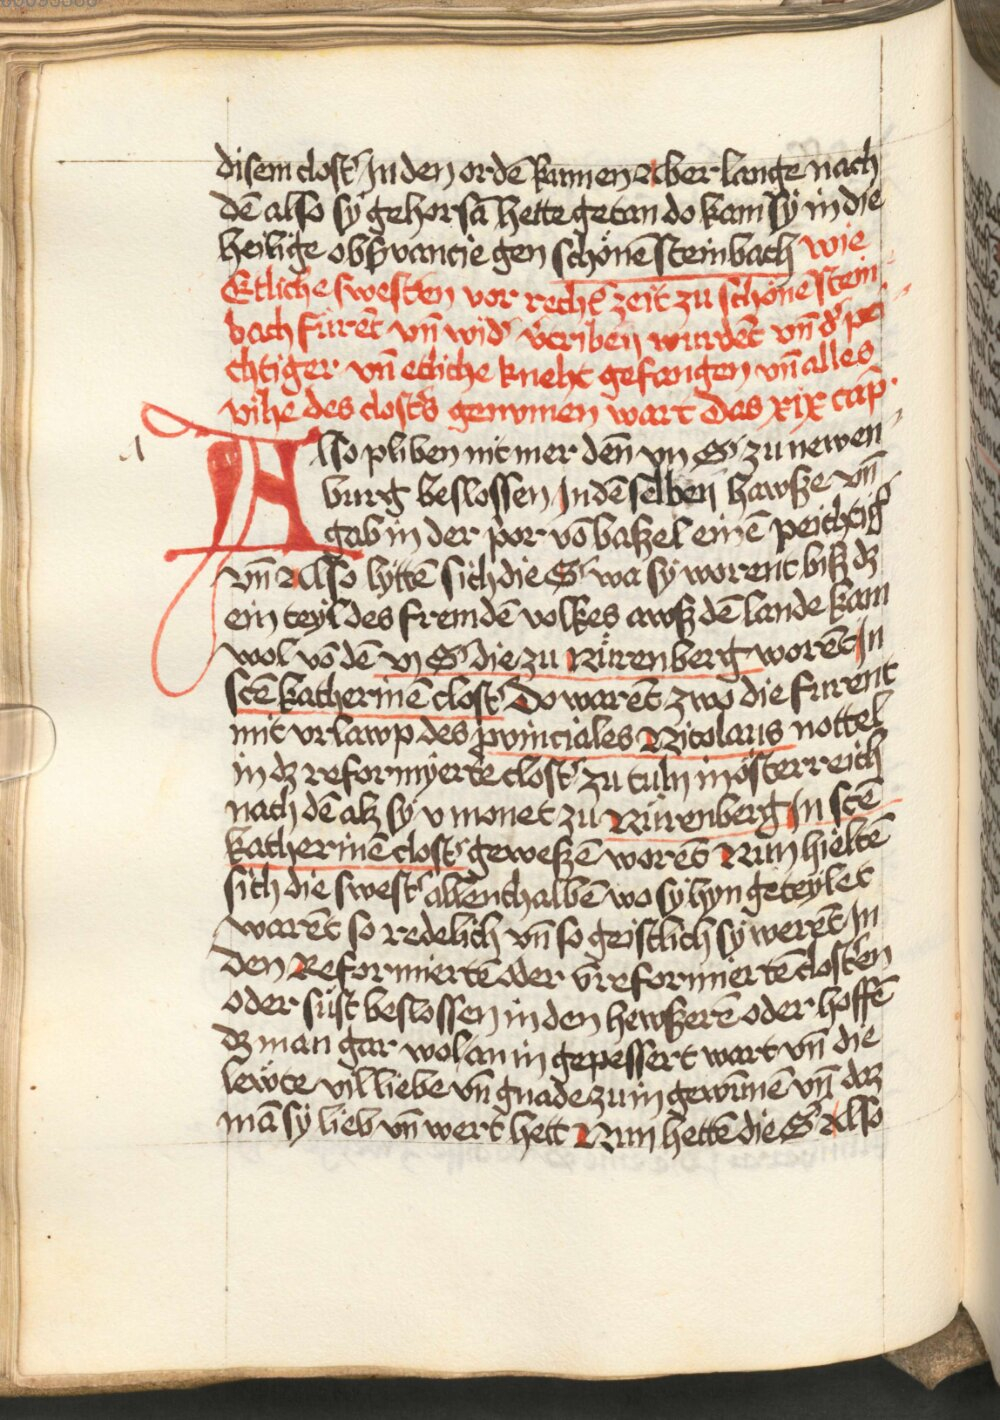 disem clost' In den ordē kumen Aber lange nach
dē also sy gehorsā hette getan do kam sy in die
heilige obßvancie gen schönē steinbach wie
Etliche swesten vor recht' zeit zu schönē stein
bach fürēt vn̄ wid' v'triben wurdēt vn̄ d' pei
chtiger vn̄ etliche kneht gefangen vn̄ alles
vihe des clost's genumen wart das xix cap̄
Also pliben nit mer den̄ vij S' zu newen
burg beslossen In dē selben hawße vn̄
gab in der por vō baßel einē peichtig'
vn̄ Also lytte͞ sich die S' wa sy worent biß dz
ein teyl des fremdē volkes awß dē lande kam
wol vō dē vj S' die zu Nürenberg worēt In
sctē katherinē clost' Do warēt zwo die furent
mit vrlawp des p̱uinciales Nicolaus nottel
in dz reformyerte clost' zu tuln in österreich
nach dē alz sy v monet zu Nürenberg In sctē
katherinē clost' geweßē worēt Nun hieltē
sich die swest' allenthalbē wo sy hyn geteylet
warēt so redelich vn̄ so geistlich sy werēt In
den Reformiertē oder vn̄reformiertē clost'en
oder süst beslossen in den hewßerē oder hoffē
dz man gar wol an in gepessert wart vn̄ die
lewte vil liebe vn̄ gnade zu in gewu̅nē vn̄ daz
mā sy lieb vn̄ wert hett Nun hettē die S' Also